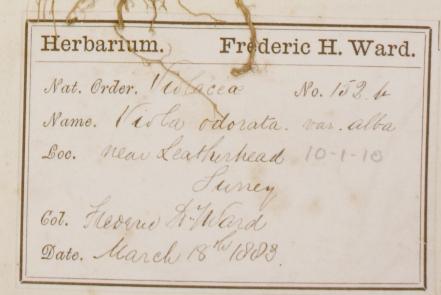 Herbarium. Frederic H. Ward.
Nat. Order. Violaceæ No. 152 b
Name. Viola odorata. var. alba
Loc. near Leatherhead 10-1-10
Surrey
Col. Frederic H. Ward
Date. March 18th 1883.